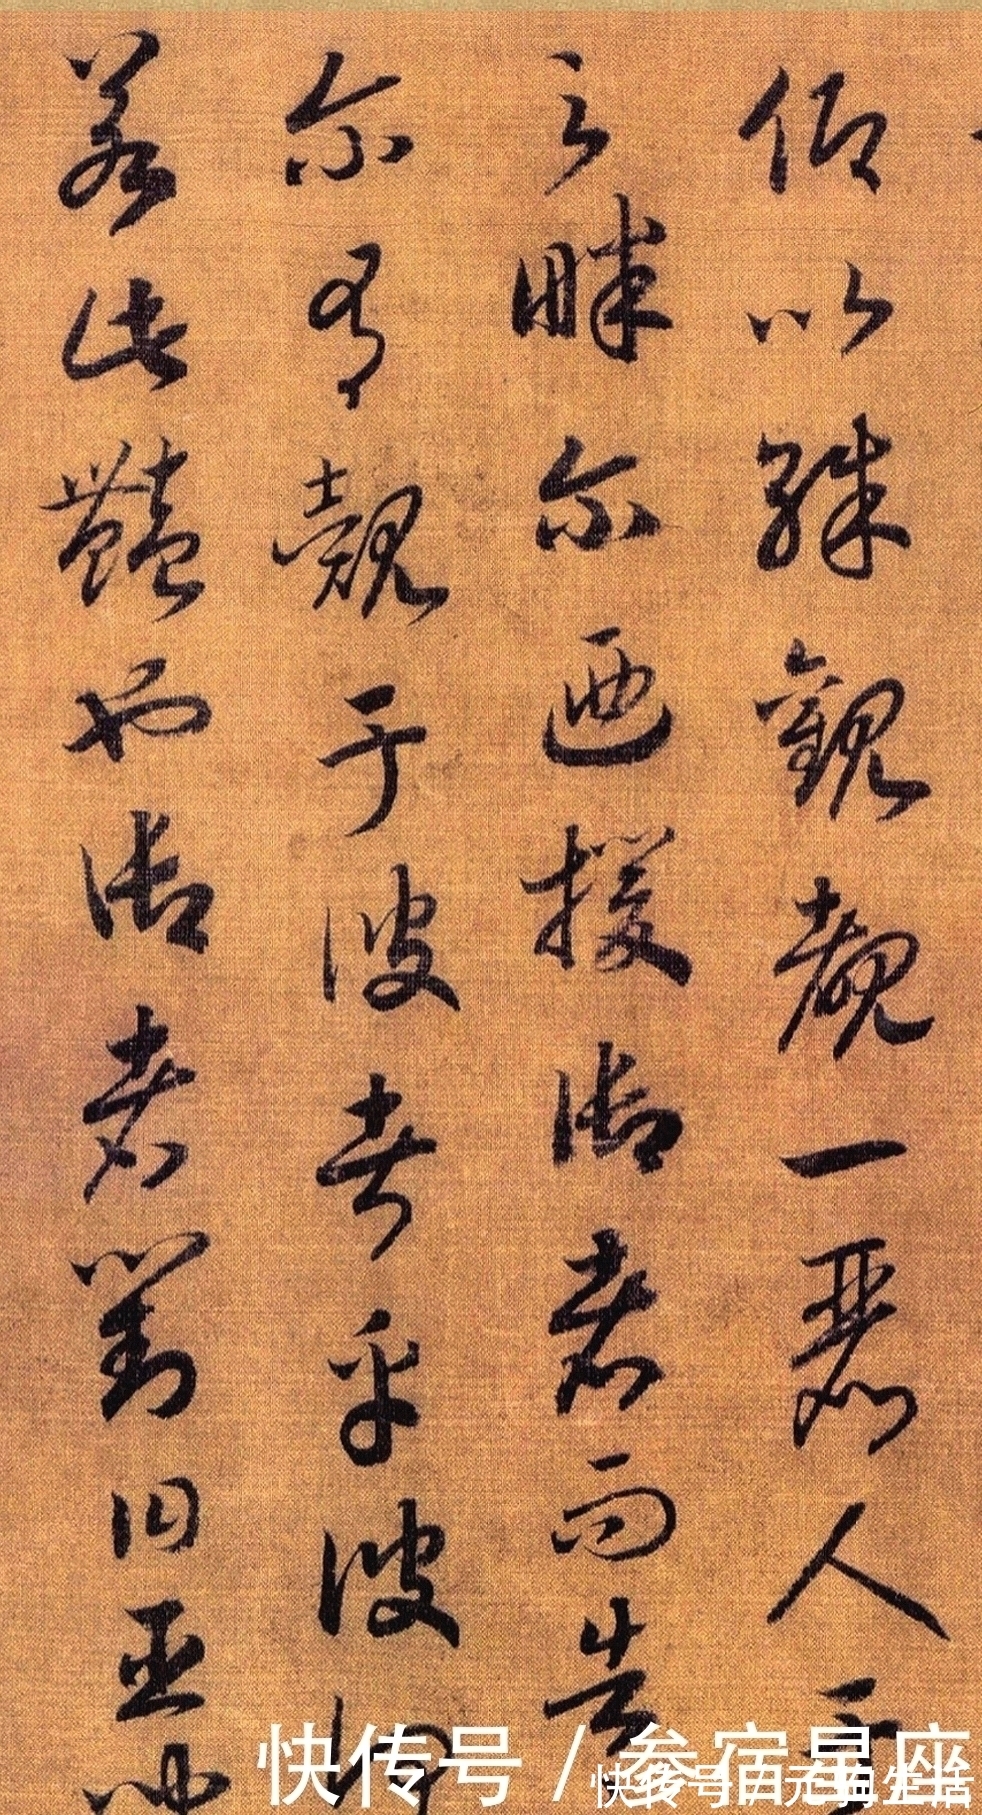 仰以殊觀覩一麗人
之畔尔迺援御者而告
尔有覿于彼者乎彼何
若此豔也御者對曰臣
快传号 / 参宿星座